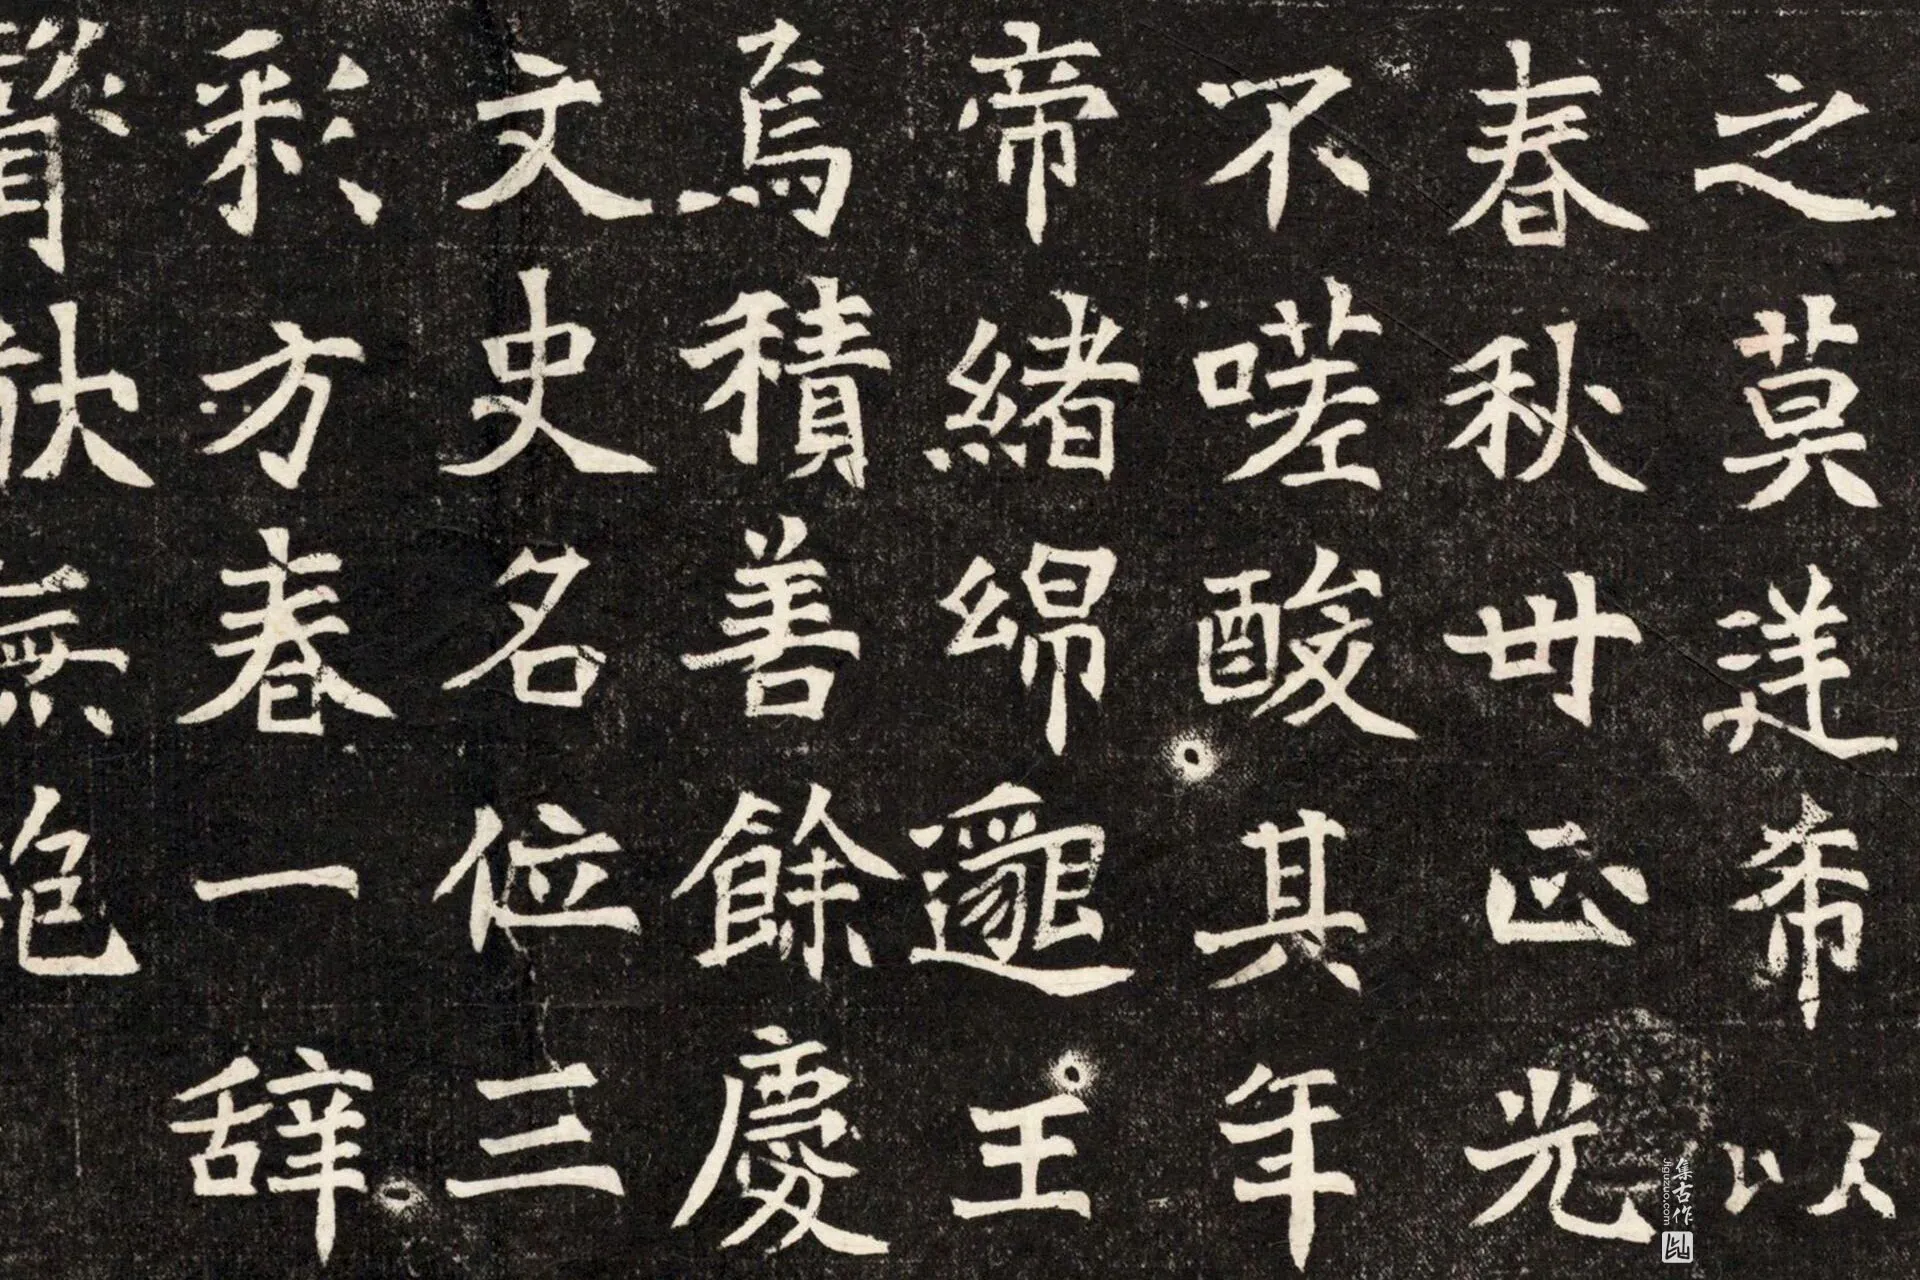 之莫逹希以
春秋卅正光
不嗟酸其年
帝緒綿邈王
焉積善餘慶
文史名位三
彩方春一辞
集古作
jiguzuo.com